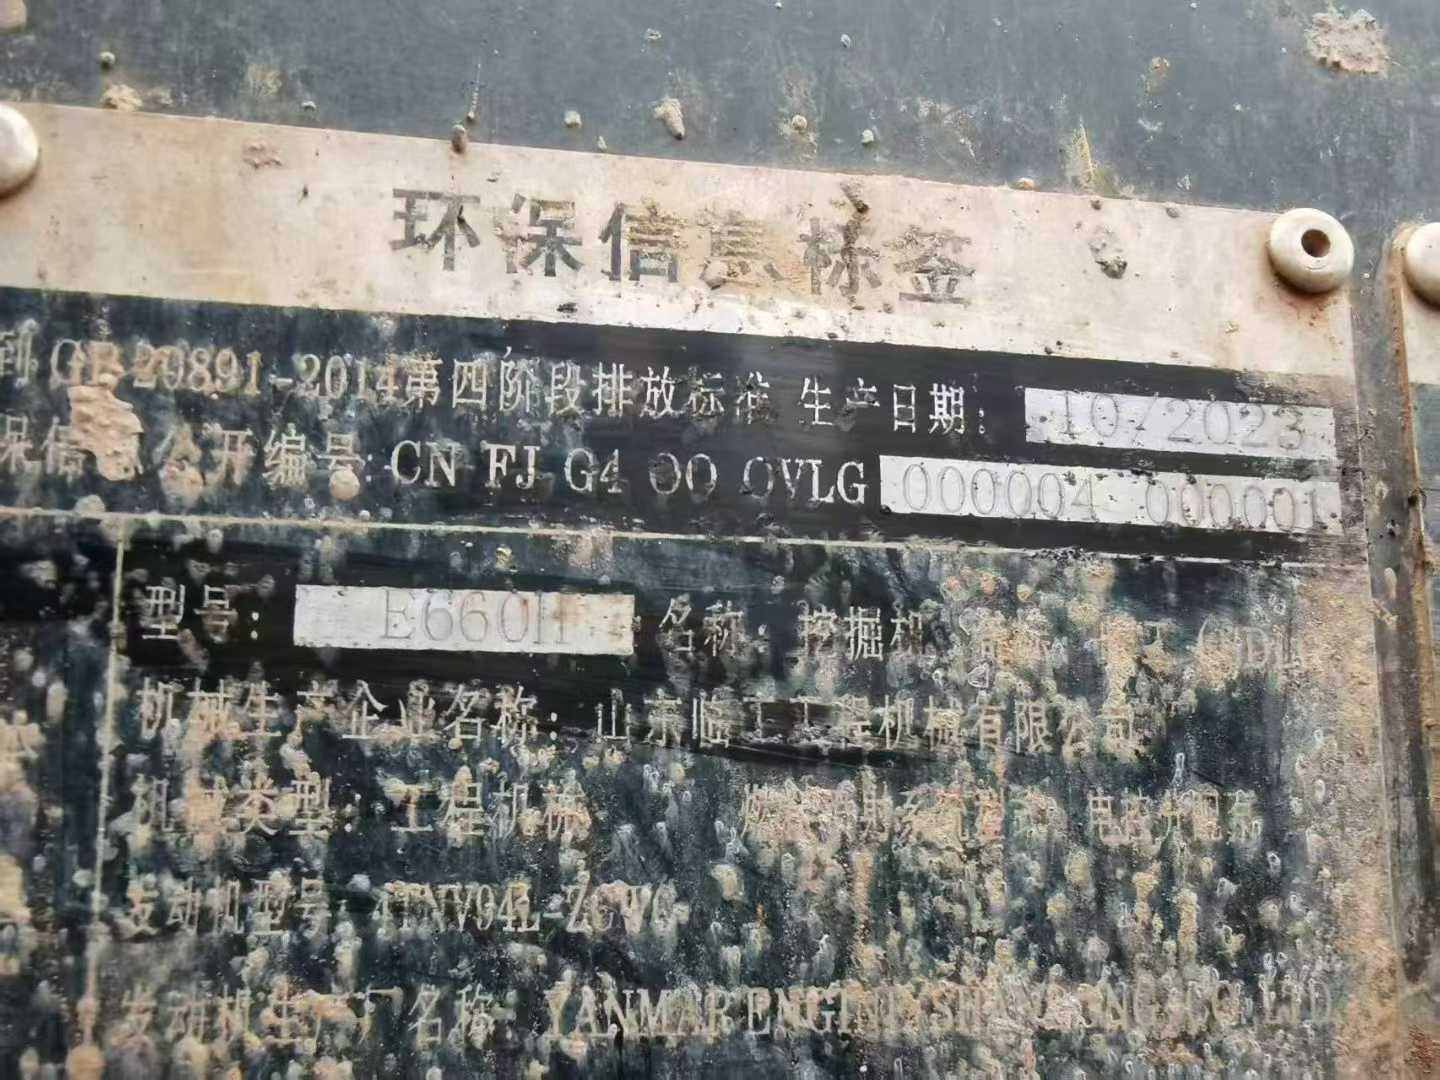 环保信息标签
到 GB 20891-2014第四阶段排放标准 生产日期: 10/2023
保信息公开编号: CN FJ G4 00 0VLG 000004 000001
型号: E660H 名称: 挖掘机 商标: (SDLG
机械生产企业名称: 山东临工工程机械有限公司
机械类型: 工程机械 燃油喷射系统型式: 电控分配泵
发动机型号: 4TNV94L-ZCWC
发动机生产厂名称: YANMAR ENGINE(SHANDONG)CO.,LTD.